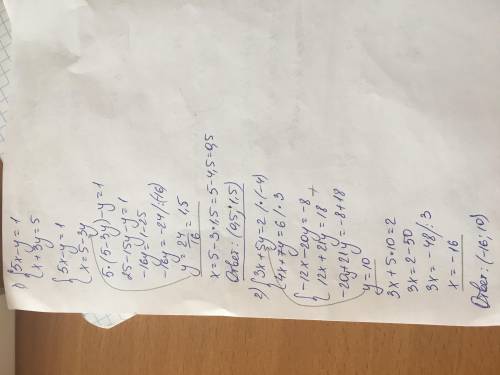 1) {5x-y=1
{x+3y=5
{5x-y=1
{x=5-3y
5·(5-3y)-y=1
25-15y-y=1
-16y=1-25
-16y=-24 |:(-16)
y=24/16=1,5
x=5-3·1,5=5-4,5=0,5
Ответ: (0,5; 1,5)
2) {3x+5y=2 |·(-4)
{4x+7y=6 |·3
{-12x-20y=-8
{12x+21y=18 +
-20y+21y=-8+18
y=10
3x+5·10=2
3x=2-50
3x=-48 |:3
x=-16
Ответ: (-16; 10)